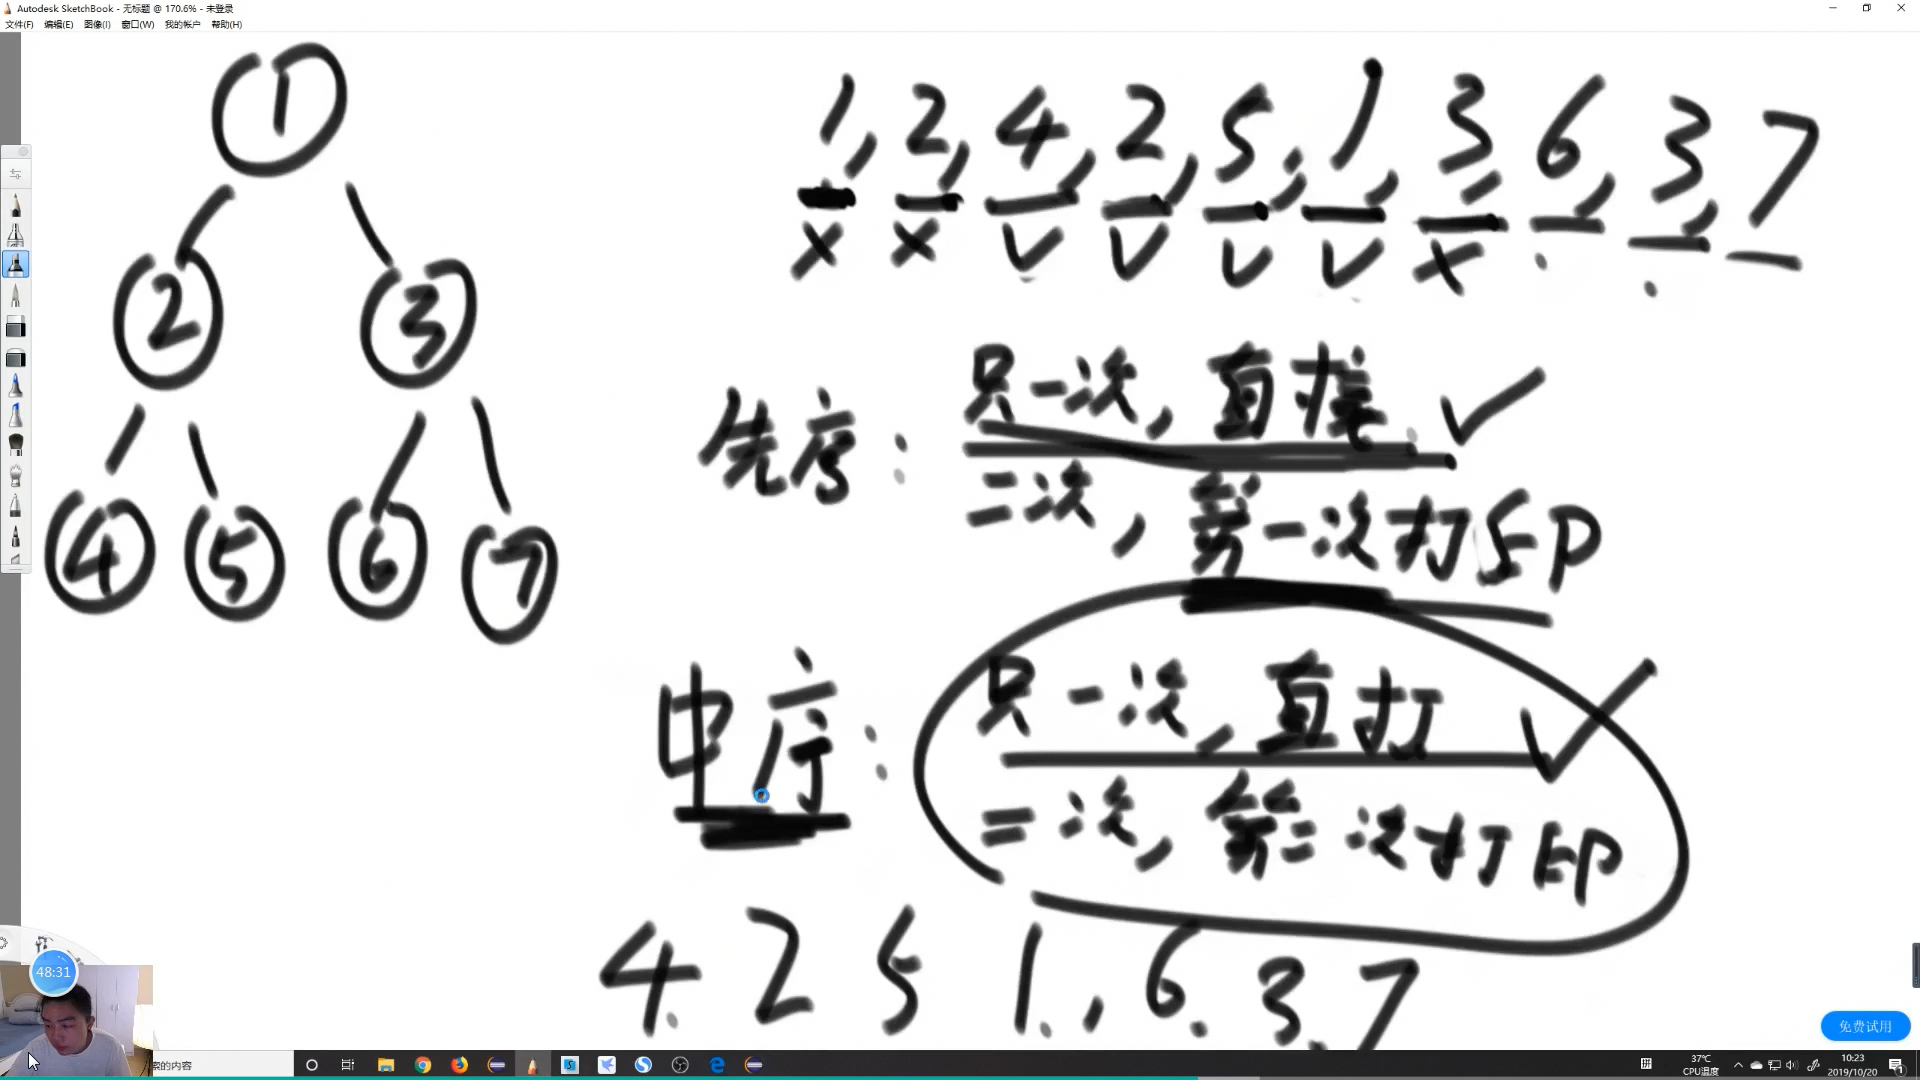 Autodesk SketchBook - 无标题 @ 170.6% - 未登录
文件(F) 编辑(E) 图像(I) 窗口(W) 我的帐户 帮助(H)
1
2 3
4 5 6 7
1, 2, 4, 2, 5, 1, 3, 6, 3, 7
x x v v v v x
先序: 只一次, 直接
二次, 第一次打印
中序: 只一次, 直打
二次, 第二次打印
4. 2 5 1., 6. 3. 7
48:31
免费试用
索的内容
37℃
CPU温度
10:23
2019/10/20